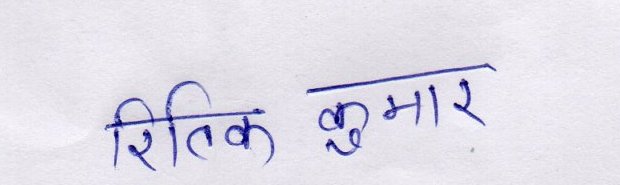 रितिक कुमार